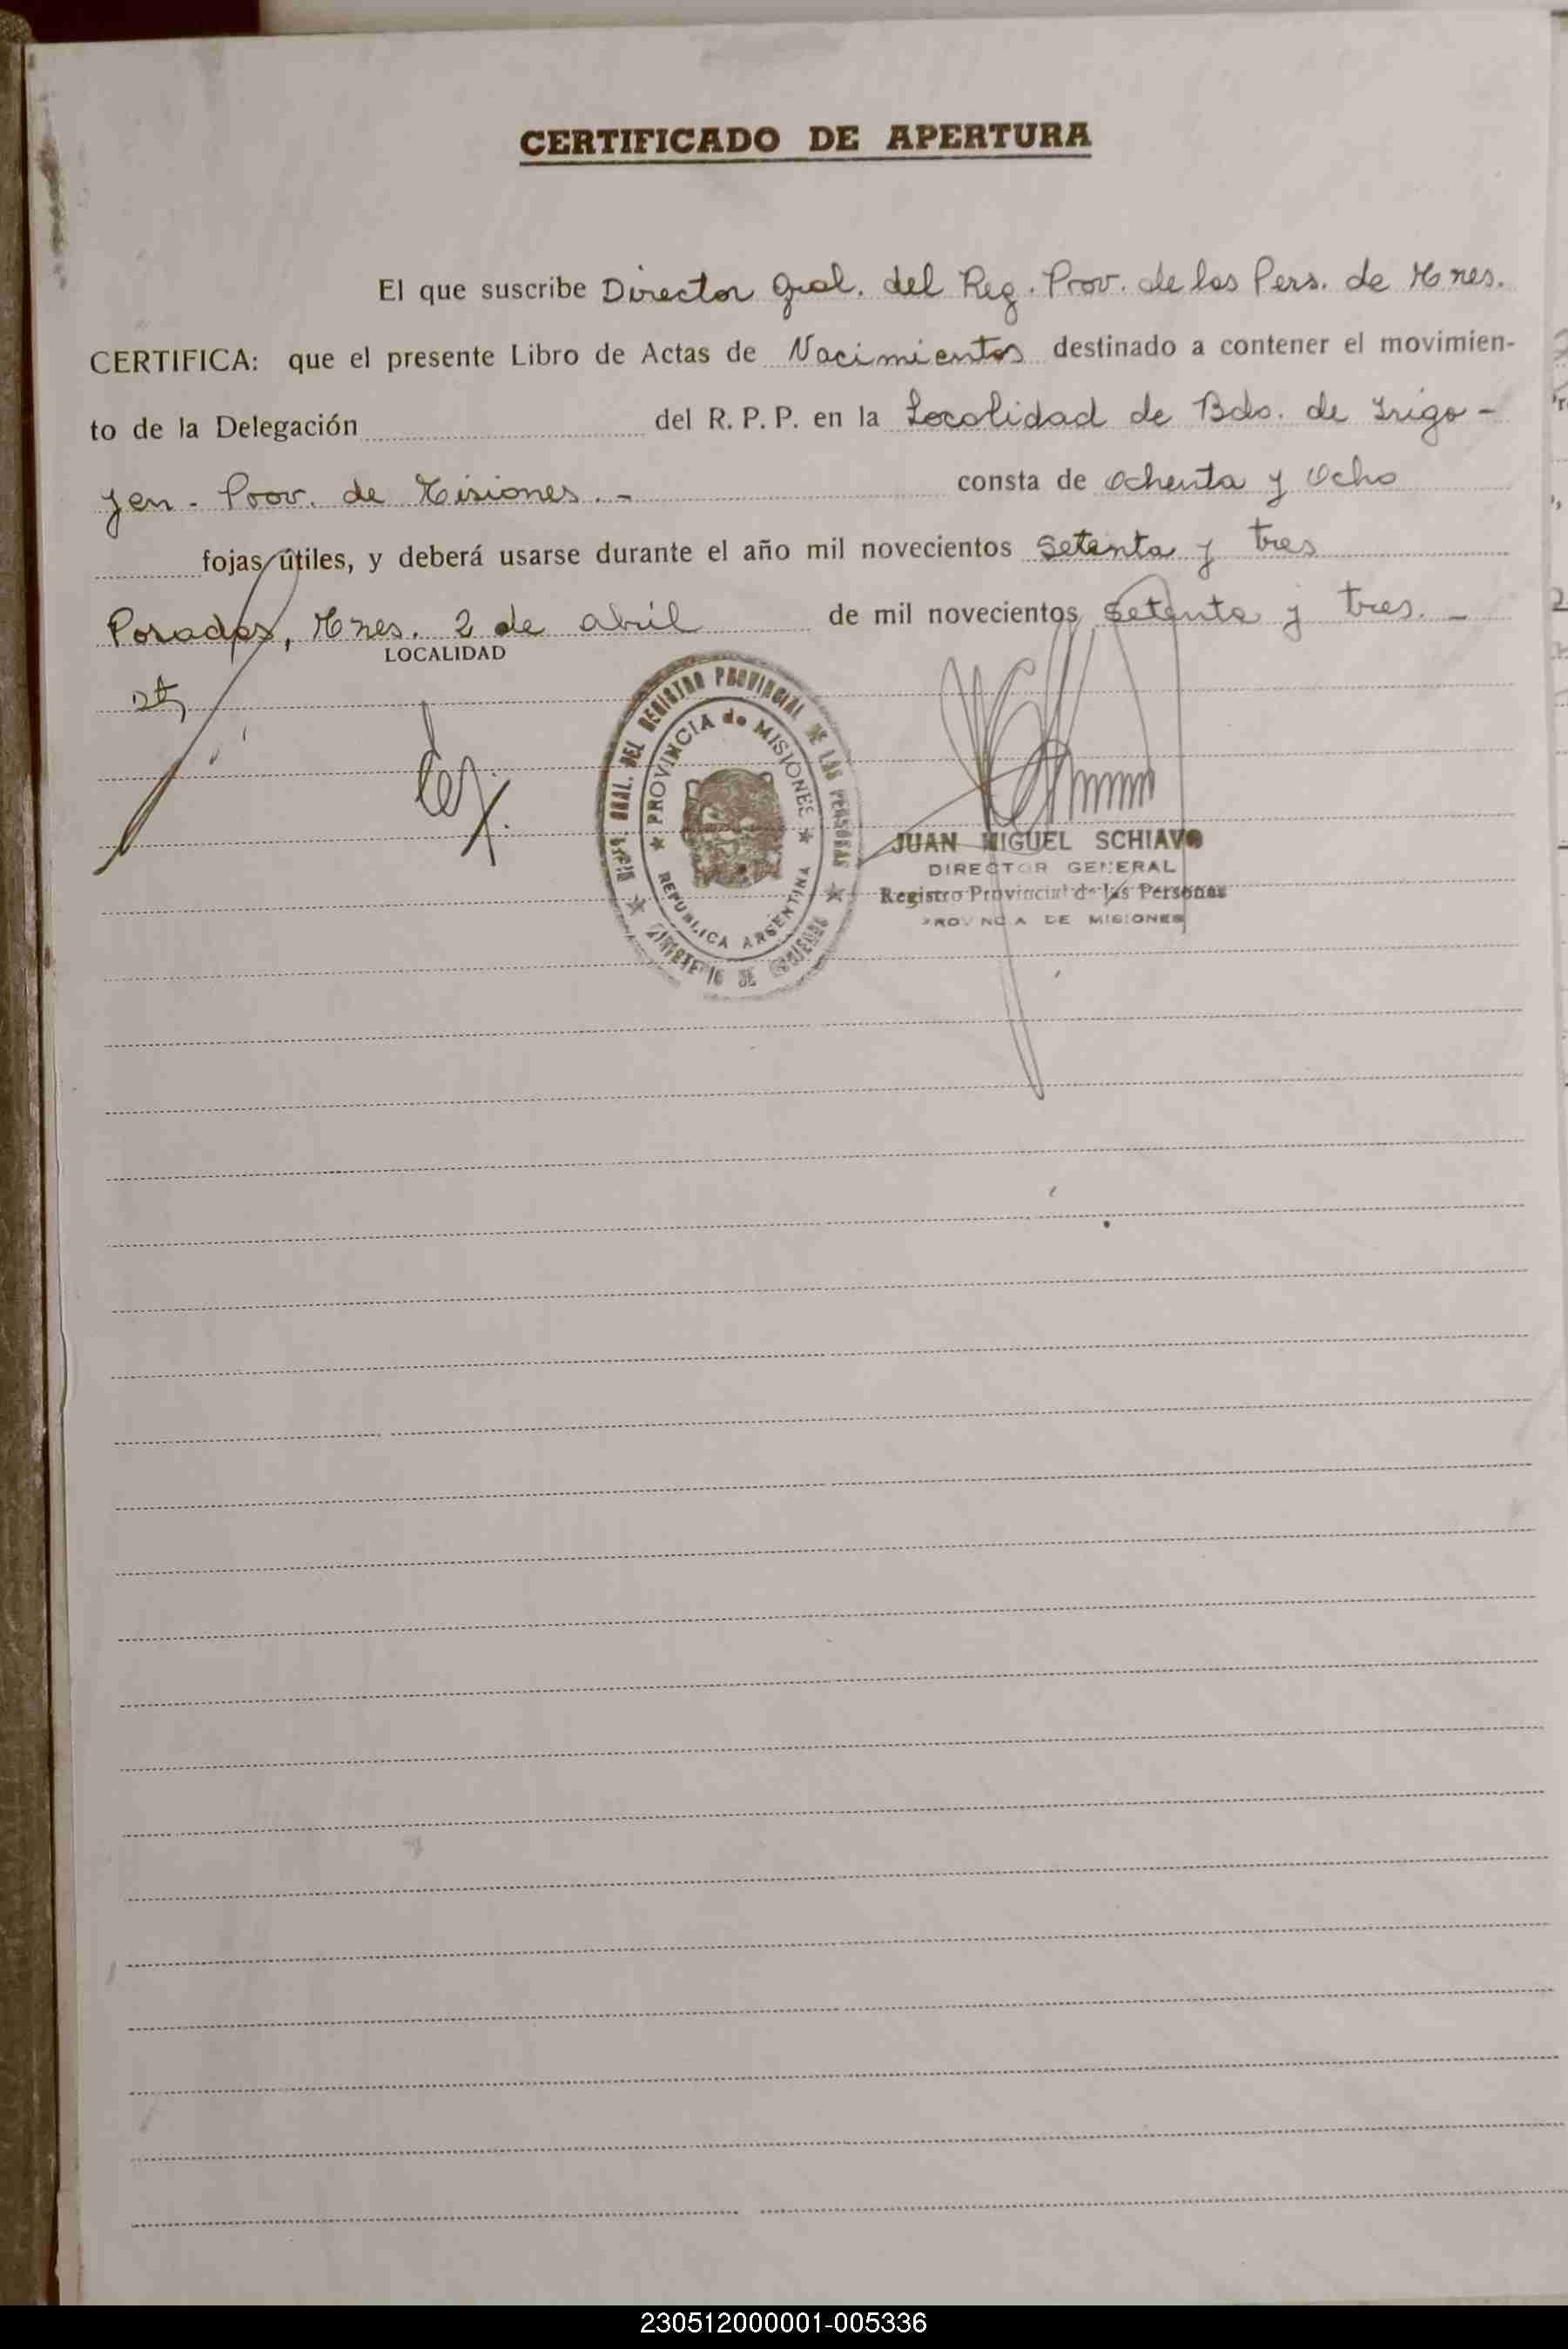 CERTIFICADO DE APERTURA
El que suscribe Director Gral. del Reg. Prov. de las Pers. de Mnes.
CERTIFICA: que el presente Libro de Actas de Nacimientos destinado a contener el movimien-
to de la Delegación del R. P. P. en la Localidad de Bdo. de Irigo-
yen - Prov. de Misiones. - consta de Ochenta y Ocho
fojas útiles, y deberá usarse durante el año mil novecientos setenta y tres
Posadas, Mnes. 2 de abril de mil novecientos setenta y tres. -
LOCALIDAD
GRAL. DEL REGISTRO PROVINCIAL DE LAS PERSONAS
PROVINCIA de MISIONES
REPUBLICA ARGENTINA
MINISTERIO DE GOBIERNO
JUAN MIGUEL SCHIAVO
DIRECTOR GENERAL
Registro Provincial de las Personas
PROVINCIA DE MISIONES
230512000001-005336